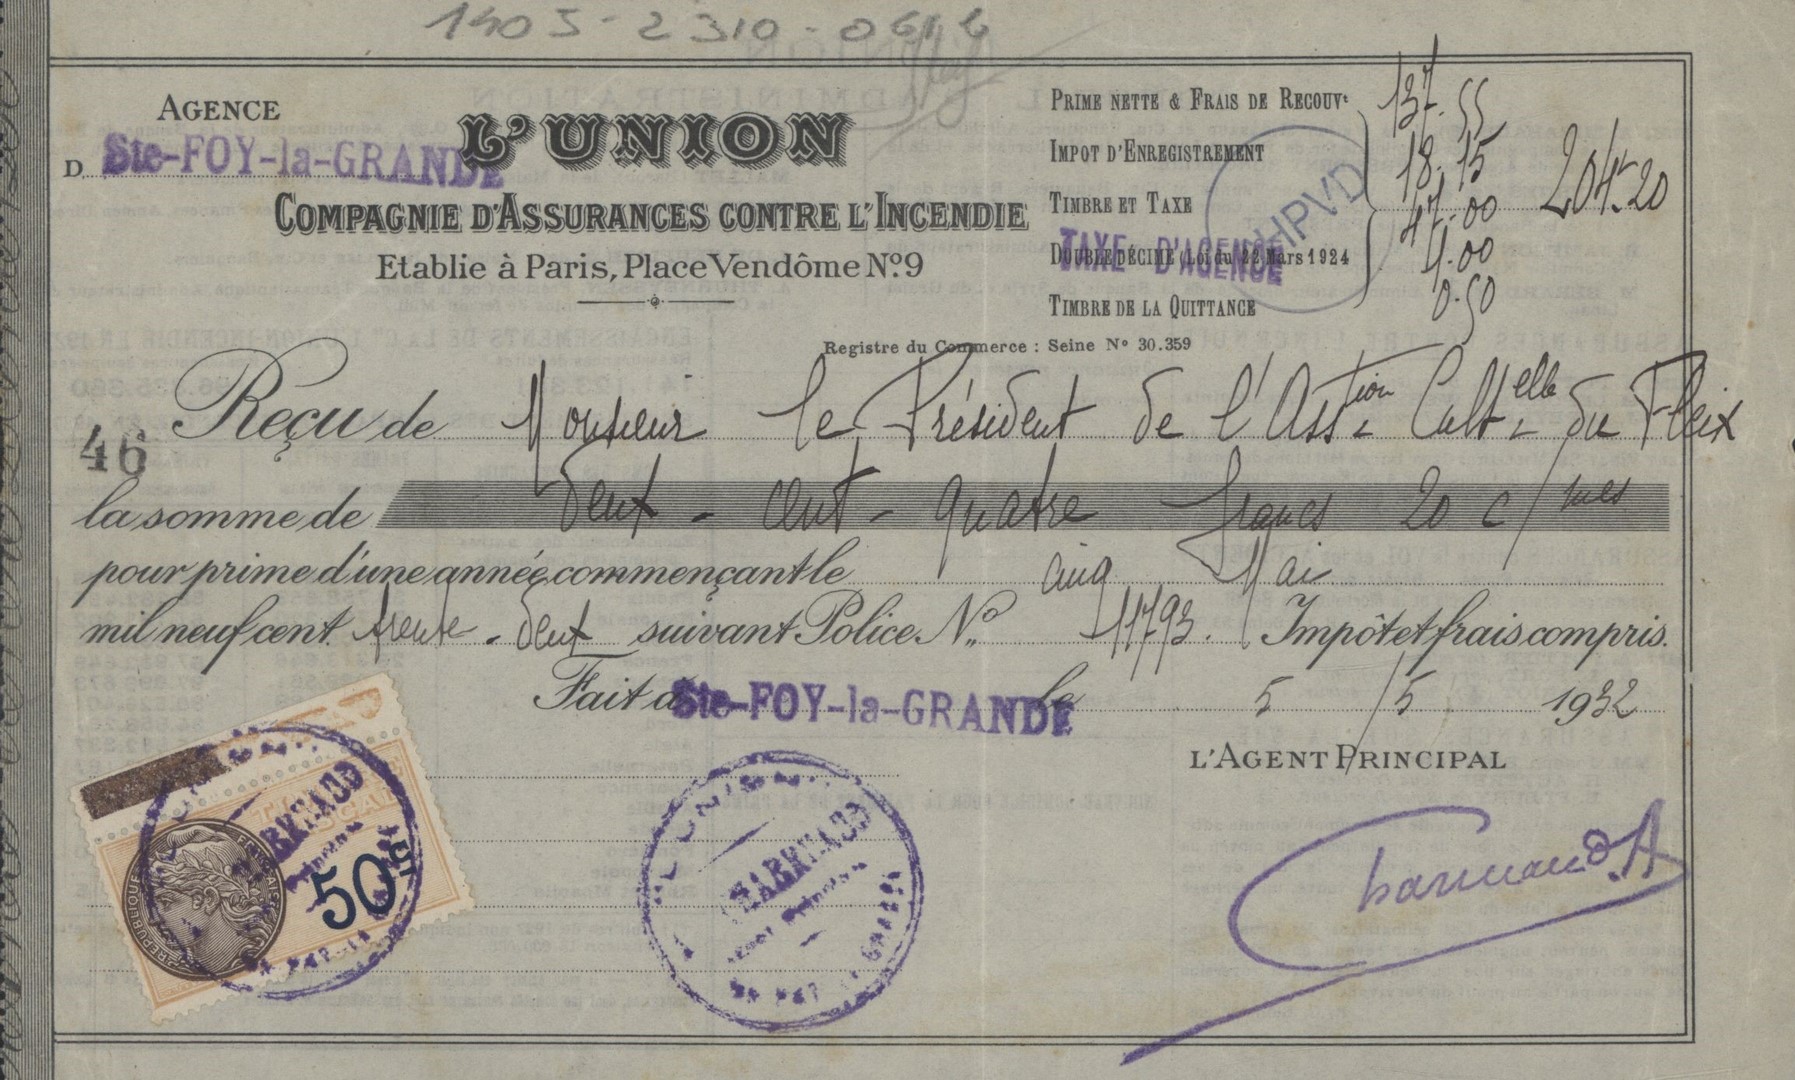 1405-2310-0616
AGENCE
D Ste-FOY-la-GRANDE
L'UNION
COMPAGNIE D'ASSURANCES CONTRE L'INCENDIE
Etablie à Paris, Place Vendôme No. 9
PRIME NETTE & FRAIS DE RECOUVt 137.55
IMPOT D'ENREGISTREMENT 18.15
TIMBRE ET TAXE 47.00
204.20
HPVD
TAXE D'AGENCE
DOUBLE DÉCIME (Loi du 22 Mars 1924 4.00
TIMBRE DE LA QUITTANCE 0.50
Registre du Commerce : Seine No 30.359
46
Reçu de Monsieur le Président de l'Asstion Cultelle du Fleix
la somme de Deux - cent - quatre francs 20 c/mes
pour prime d'une année commençant le cinq Mai
mil neuf cent trente - deux suivant Police No. 11793. Impôt et frais compris.
Fait à Ste-FOY-la-GRANDE le 5/5 1932
L'AGENT PRINCIPAL
RÉPUBLIQUE FRANÇAISE
50c
L'UNION
CHARNAUD
Agent Principal